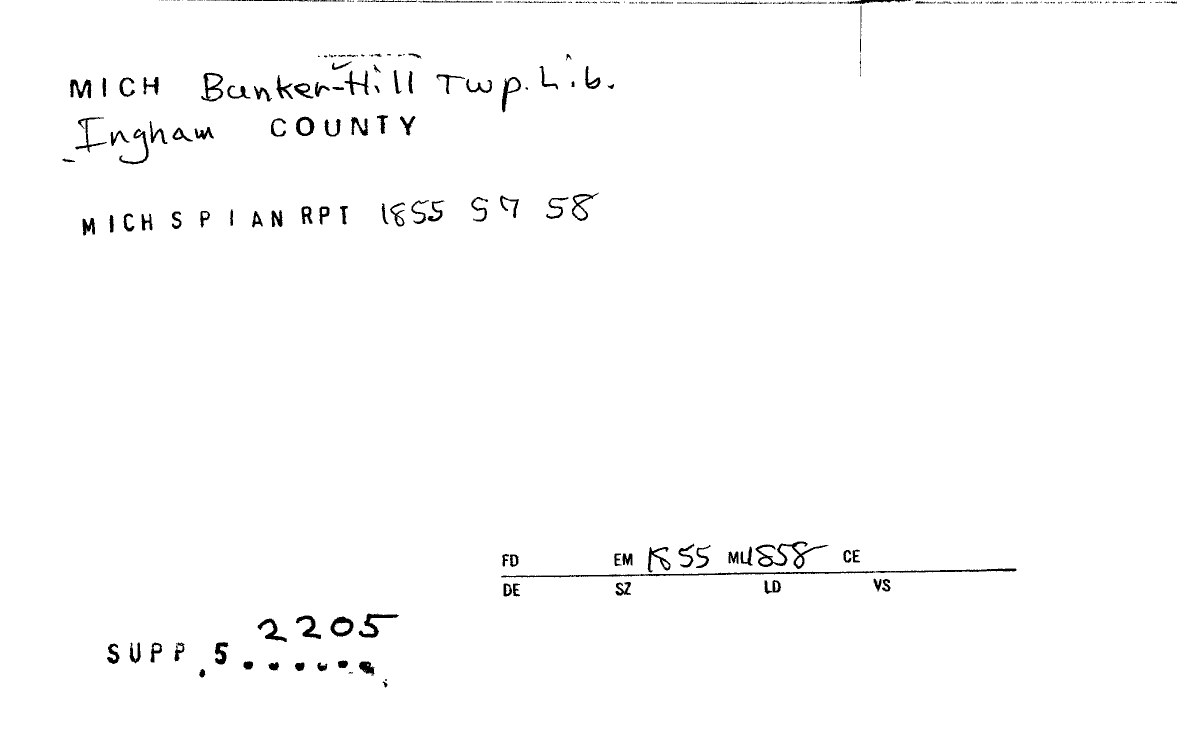 MICH Bunker-Hill Twp. Lib.
Ingham COUNTY
MICH S P I AN RPT 1855 57 58
FD EM 1855 ML 1858 CE
DE SZ LD VS
2205
SUPP.5......